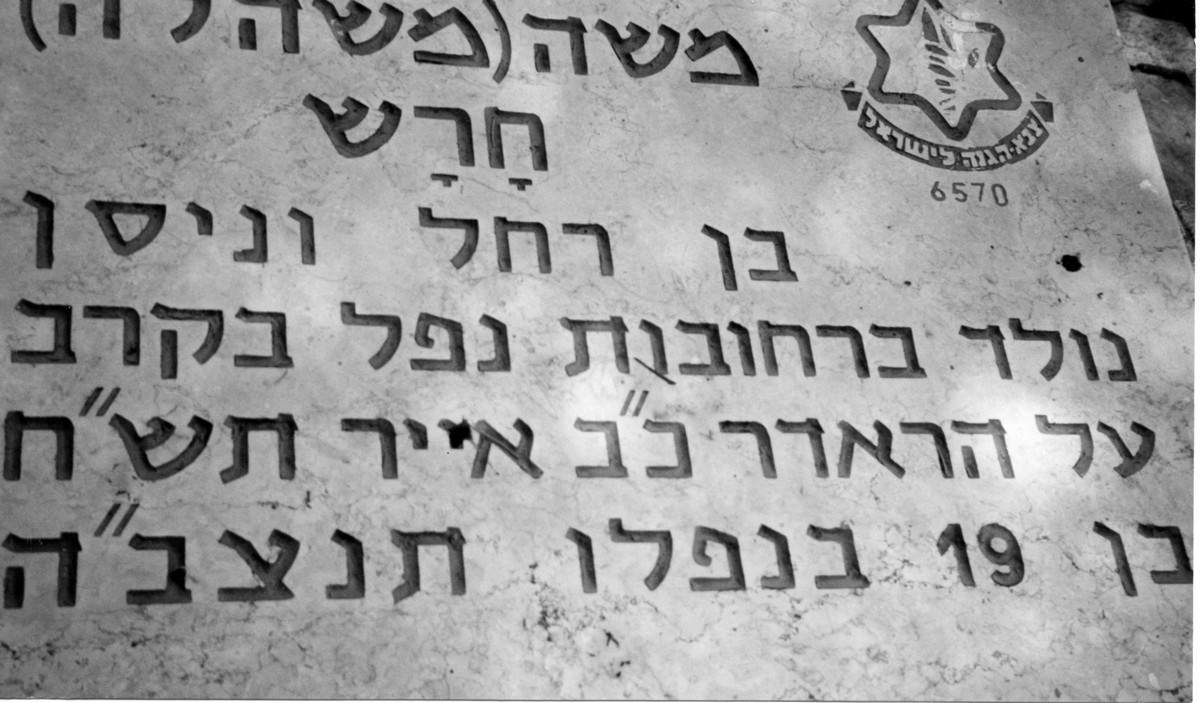 משה(משהלה)
צבא-הגנה לישראל
6570
חָרָש
בן רחל וניסן
נולד ברחובות נפל בקרב
על הראדר כ״ב אייר תש״ח
בן 19 בנפלו תנצב״ה